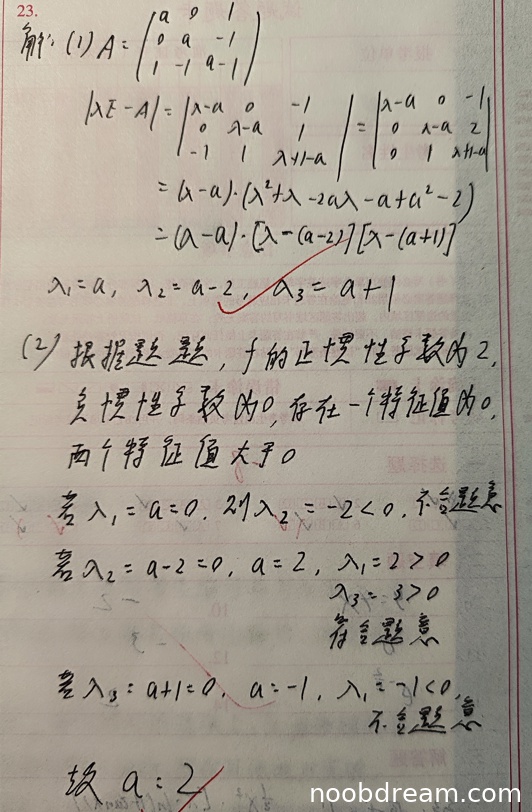 23.
解: (1) A = (a 0 1
0 a -1
1 -1 a-1)
|λE-A| = |λ-a 0 -1 = |λ-a 0 -1
0 λ-a 1 0 λ-a 2
-1 1 λ+1-a| 0 1 λ+1-a|
= (λ-a)·(λ²+λ-2aλ-a+a²-2)
= (λ-a)·[λ-(a-2)][λ-(a+1)]
λ₁=a, λ₂=a-2, λ₃=a+1
(2) 根据题题, f的正惯性子数为2,
负惯性子数为0, 存在一个特征值为0,
两个特征值大于0
若λ₁=a=0, 则λ₂=-2<0, 不合题意
若λ₂=a-2=0, a=2, λ₁=2>0
λ₃=3>0
符合题意
若λ₃=a+1=0, a=-1, λ₁=-1<0,
不合题意
故 a=2
noobdream.com